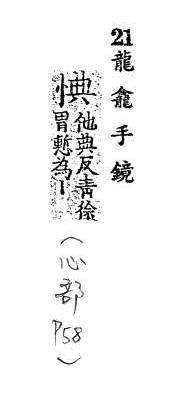 21龍龕手鏡
㥏他典反青徐
謂慙為｜
(心部
P58)